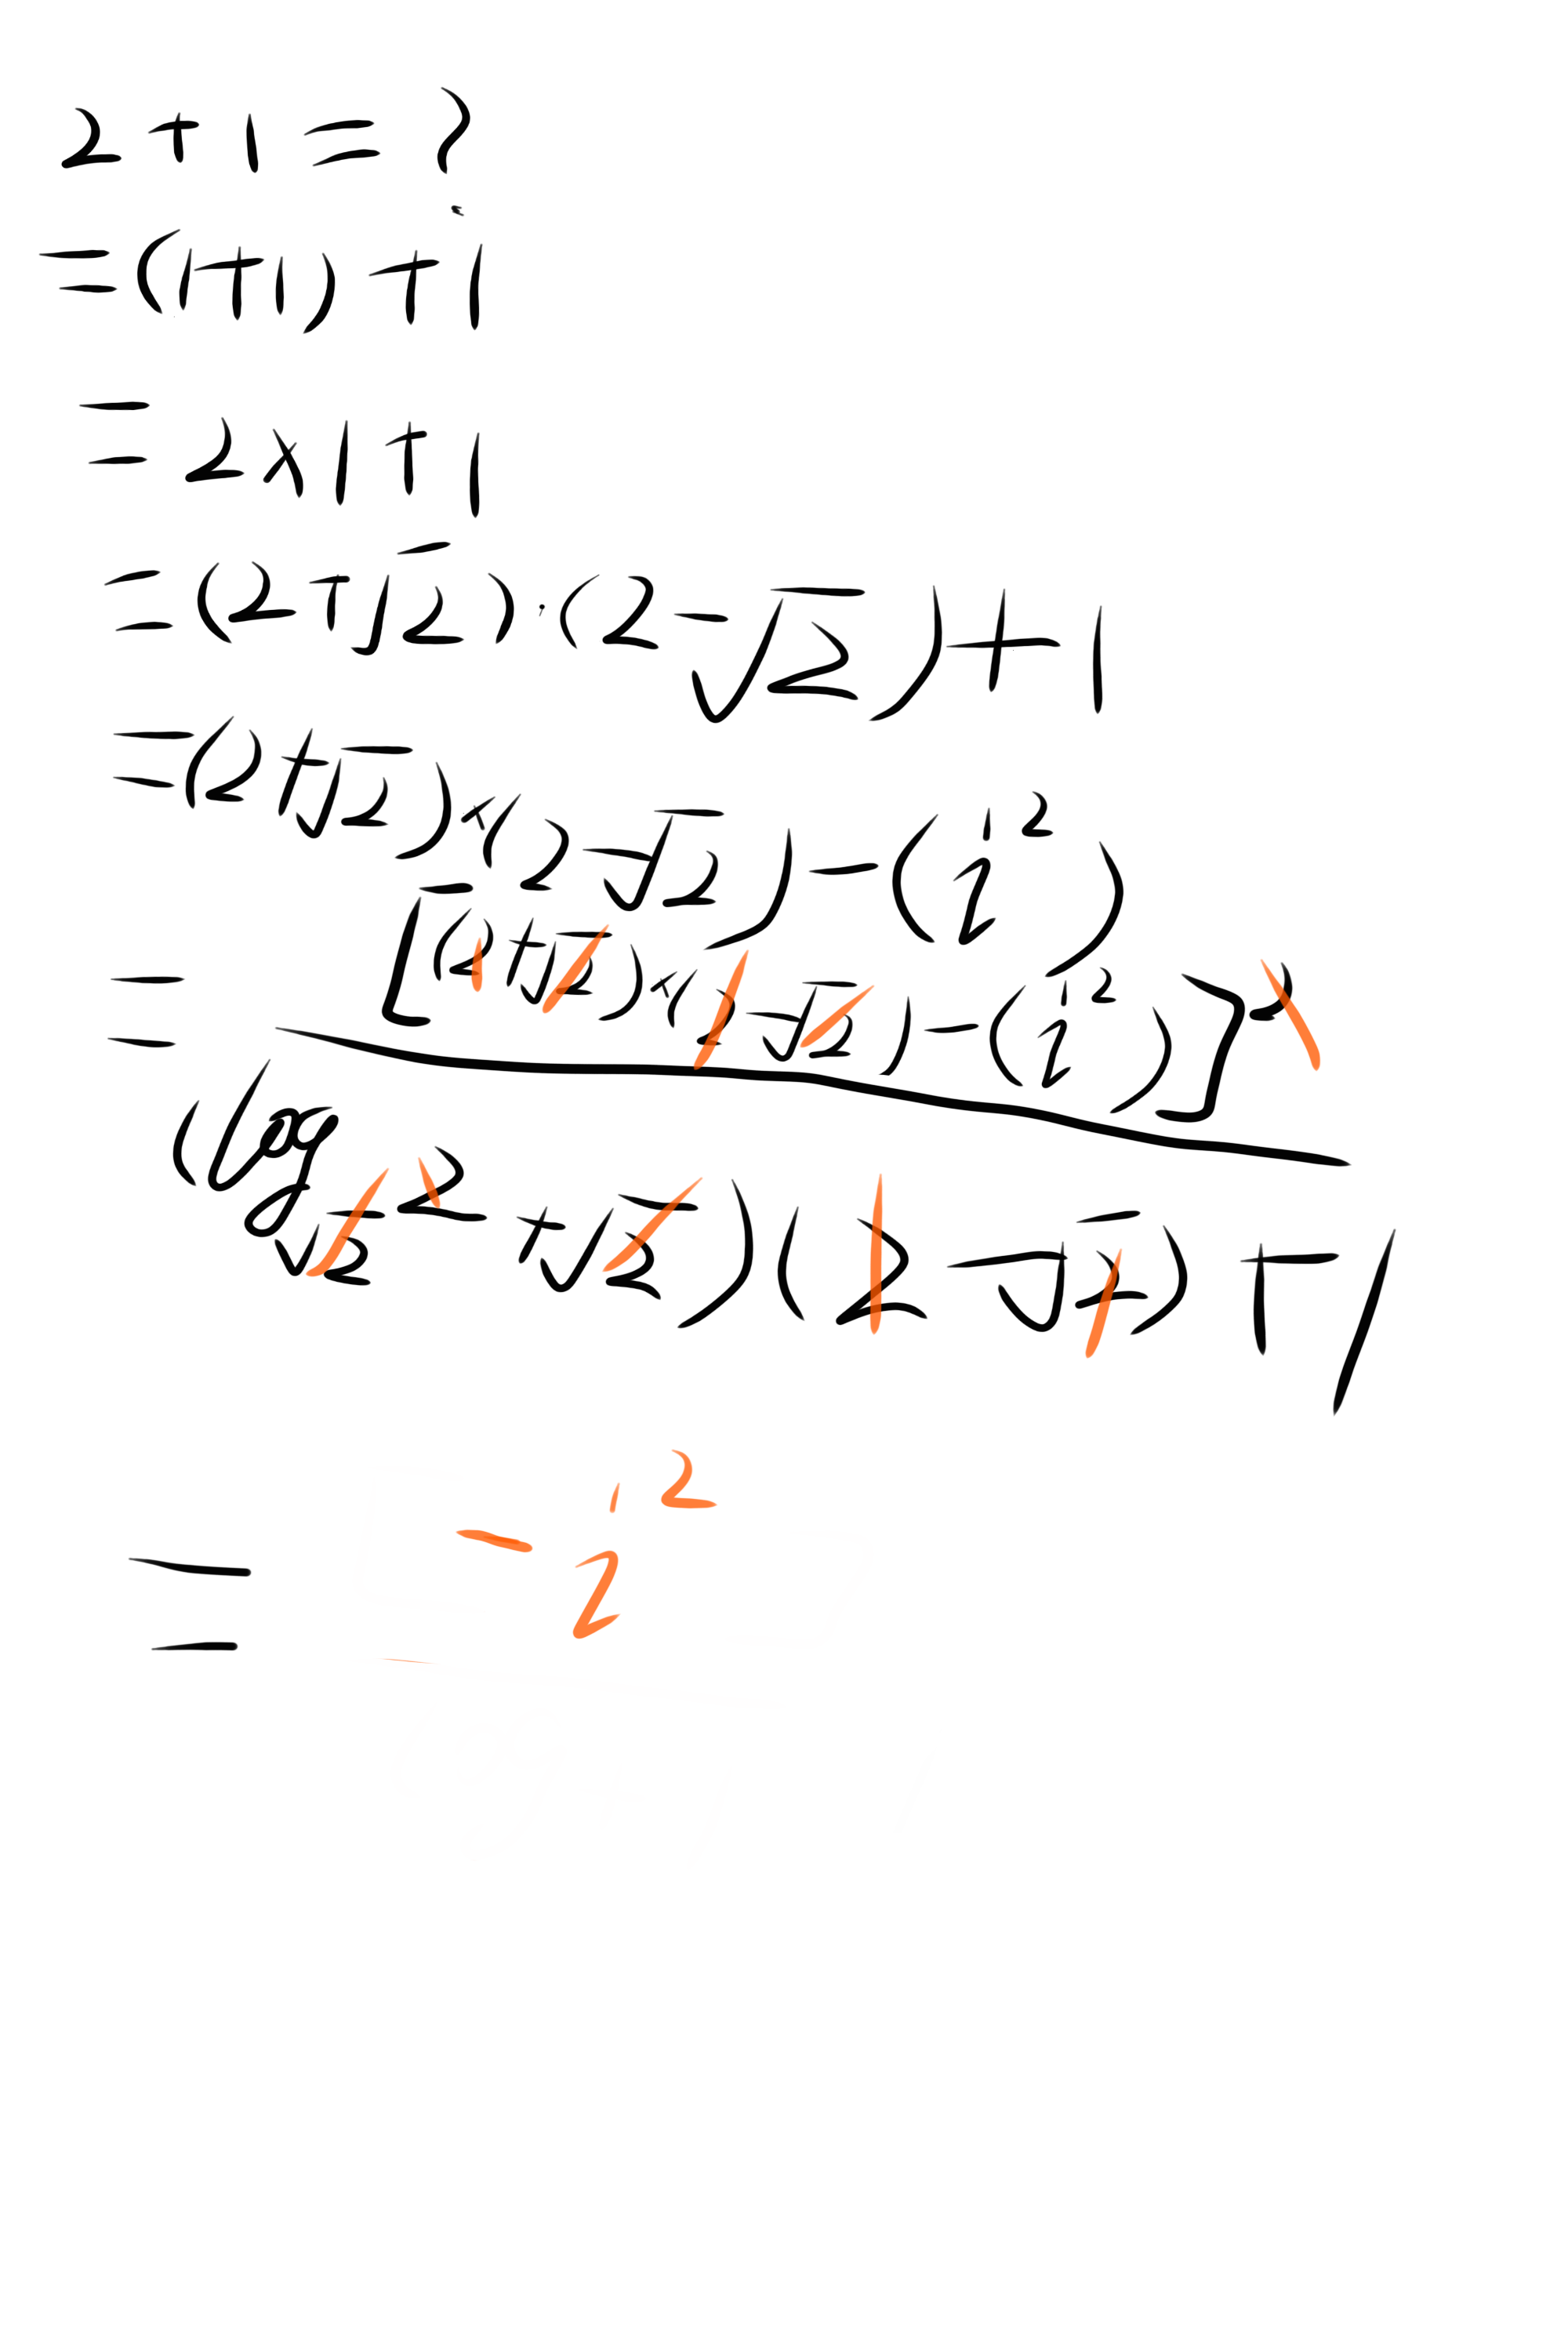 2 + 1 = ?
= (1+1) + 1
= 2 x 1 + 1
= (2+√2)·(2-√2)+1
= (2+√2)x(2-√2)-(i²)
= [(2+√2)x(2-√2)-(i²)]²
(log√2 2+√2)(2-√2)+1
= -i²